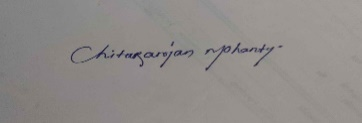 Chitaranjan Mohanty.